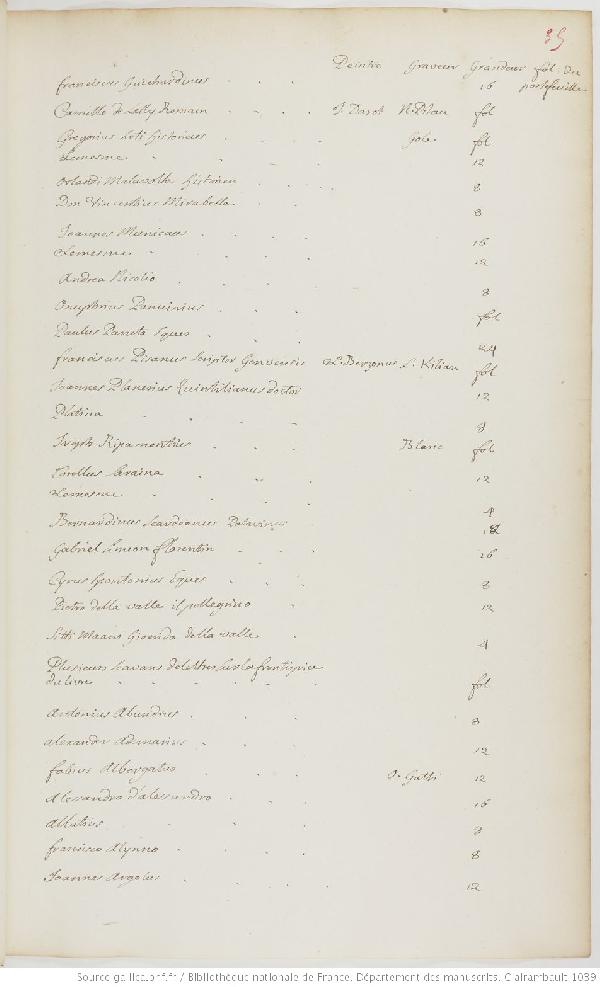 85
Peintre Graveur Grandeur fol. du
portefeuille
franciscus Guichardinus 16
Camille de Lelly Romain J. Dasot N. Pitau fol
Gregorius Leti historicus Gole fol
Lemesme 12
Orlandi Malavolti 8
Don Vincentius Mirabella 8
Joannes 16
Lemesme 12
Andrea Nicolio 8
Onuphrius Panvinius fol
Paulus Panets Eques 24
franciscus Pisanus Scriptor Genuensis L. Borzonus L. Kilian fol
Joannes Planerius Quintilianus doctor 12
Platina 8
Joseph Ripamontius Blanc fol
Caraina 12
Lemesme 4
Bernardinus Scardeonus Patavinus 12
Gabriel Simeon florentin 16
Cyrus Spontonius Eques 8
Pietro della valle il pellegrino 12
Sitti Maani Gioerida della valle 4
Plusieurs Scavans sur le frontispice
du livre fol
Antonius Abundius 8
alexander Admarius 12
fabius Albergatus O. Gatti 12
Alessandro d'alessandro 16
Allatius 8
francisco Alynno 8
Joannes Argolus 12
Source gallica.bnf.fr / Bibliothèque nationale de France. Département des manuscrits. Clairambault 1039